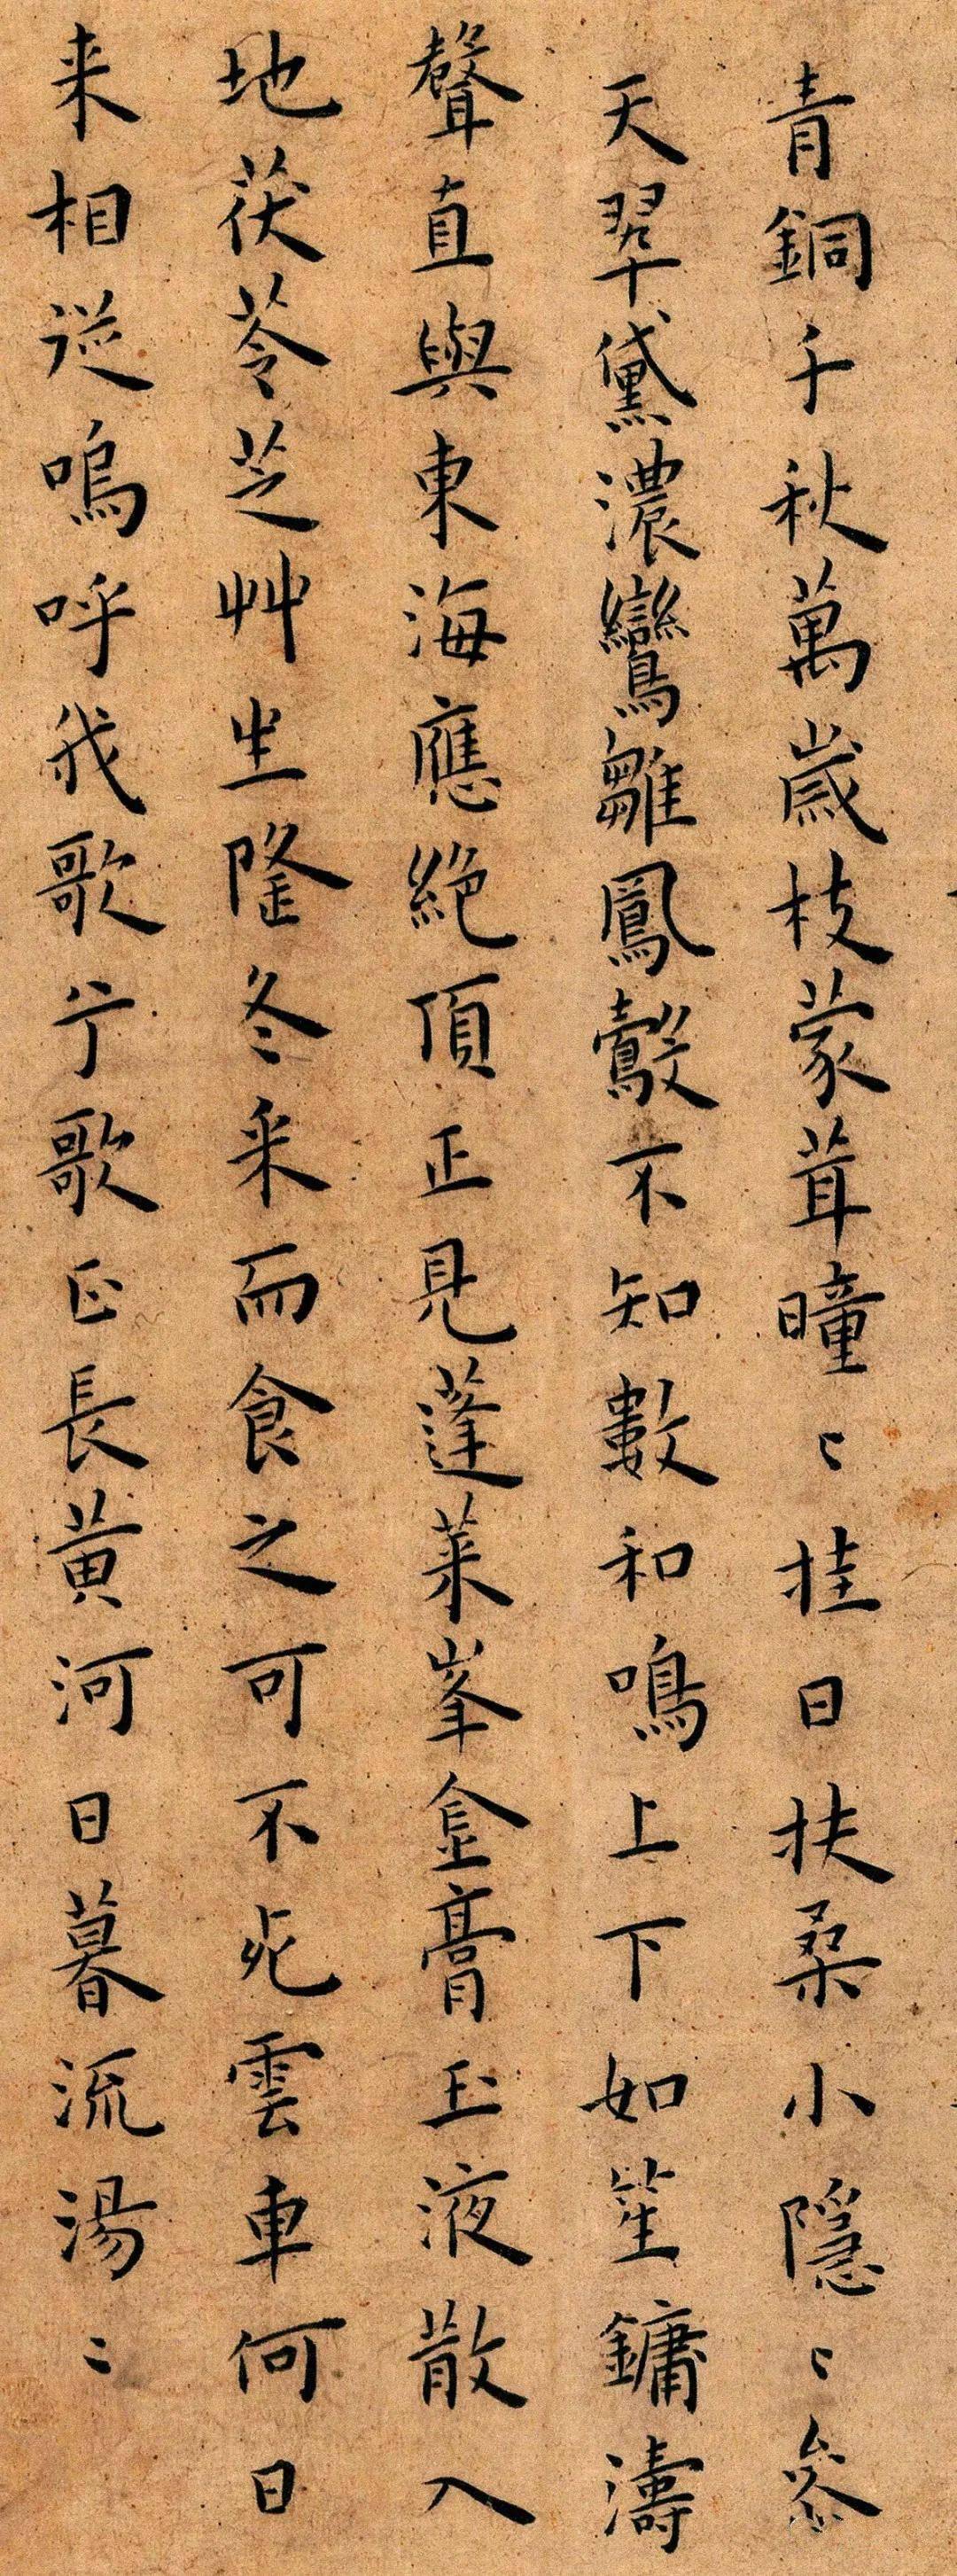 青銅千秋萬歲枝蒙茸曈〻挂日扶桑小隱〻參
天翠黛濃鸞雛鳳鷇不知數和鳴上下如笙鏞濤
聲直與東海應絕頂正見蓬萊峯金膏玉液散入
地茯苓芝艸生隆冬采而食之可不死雲車何日
来相從嗚呼我歌兮歌正長黄河日暮流湯〻